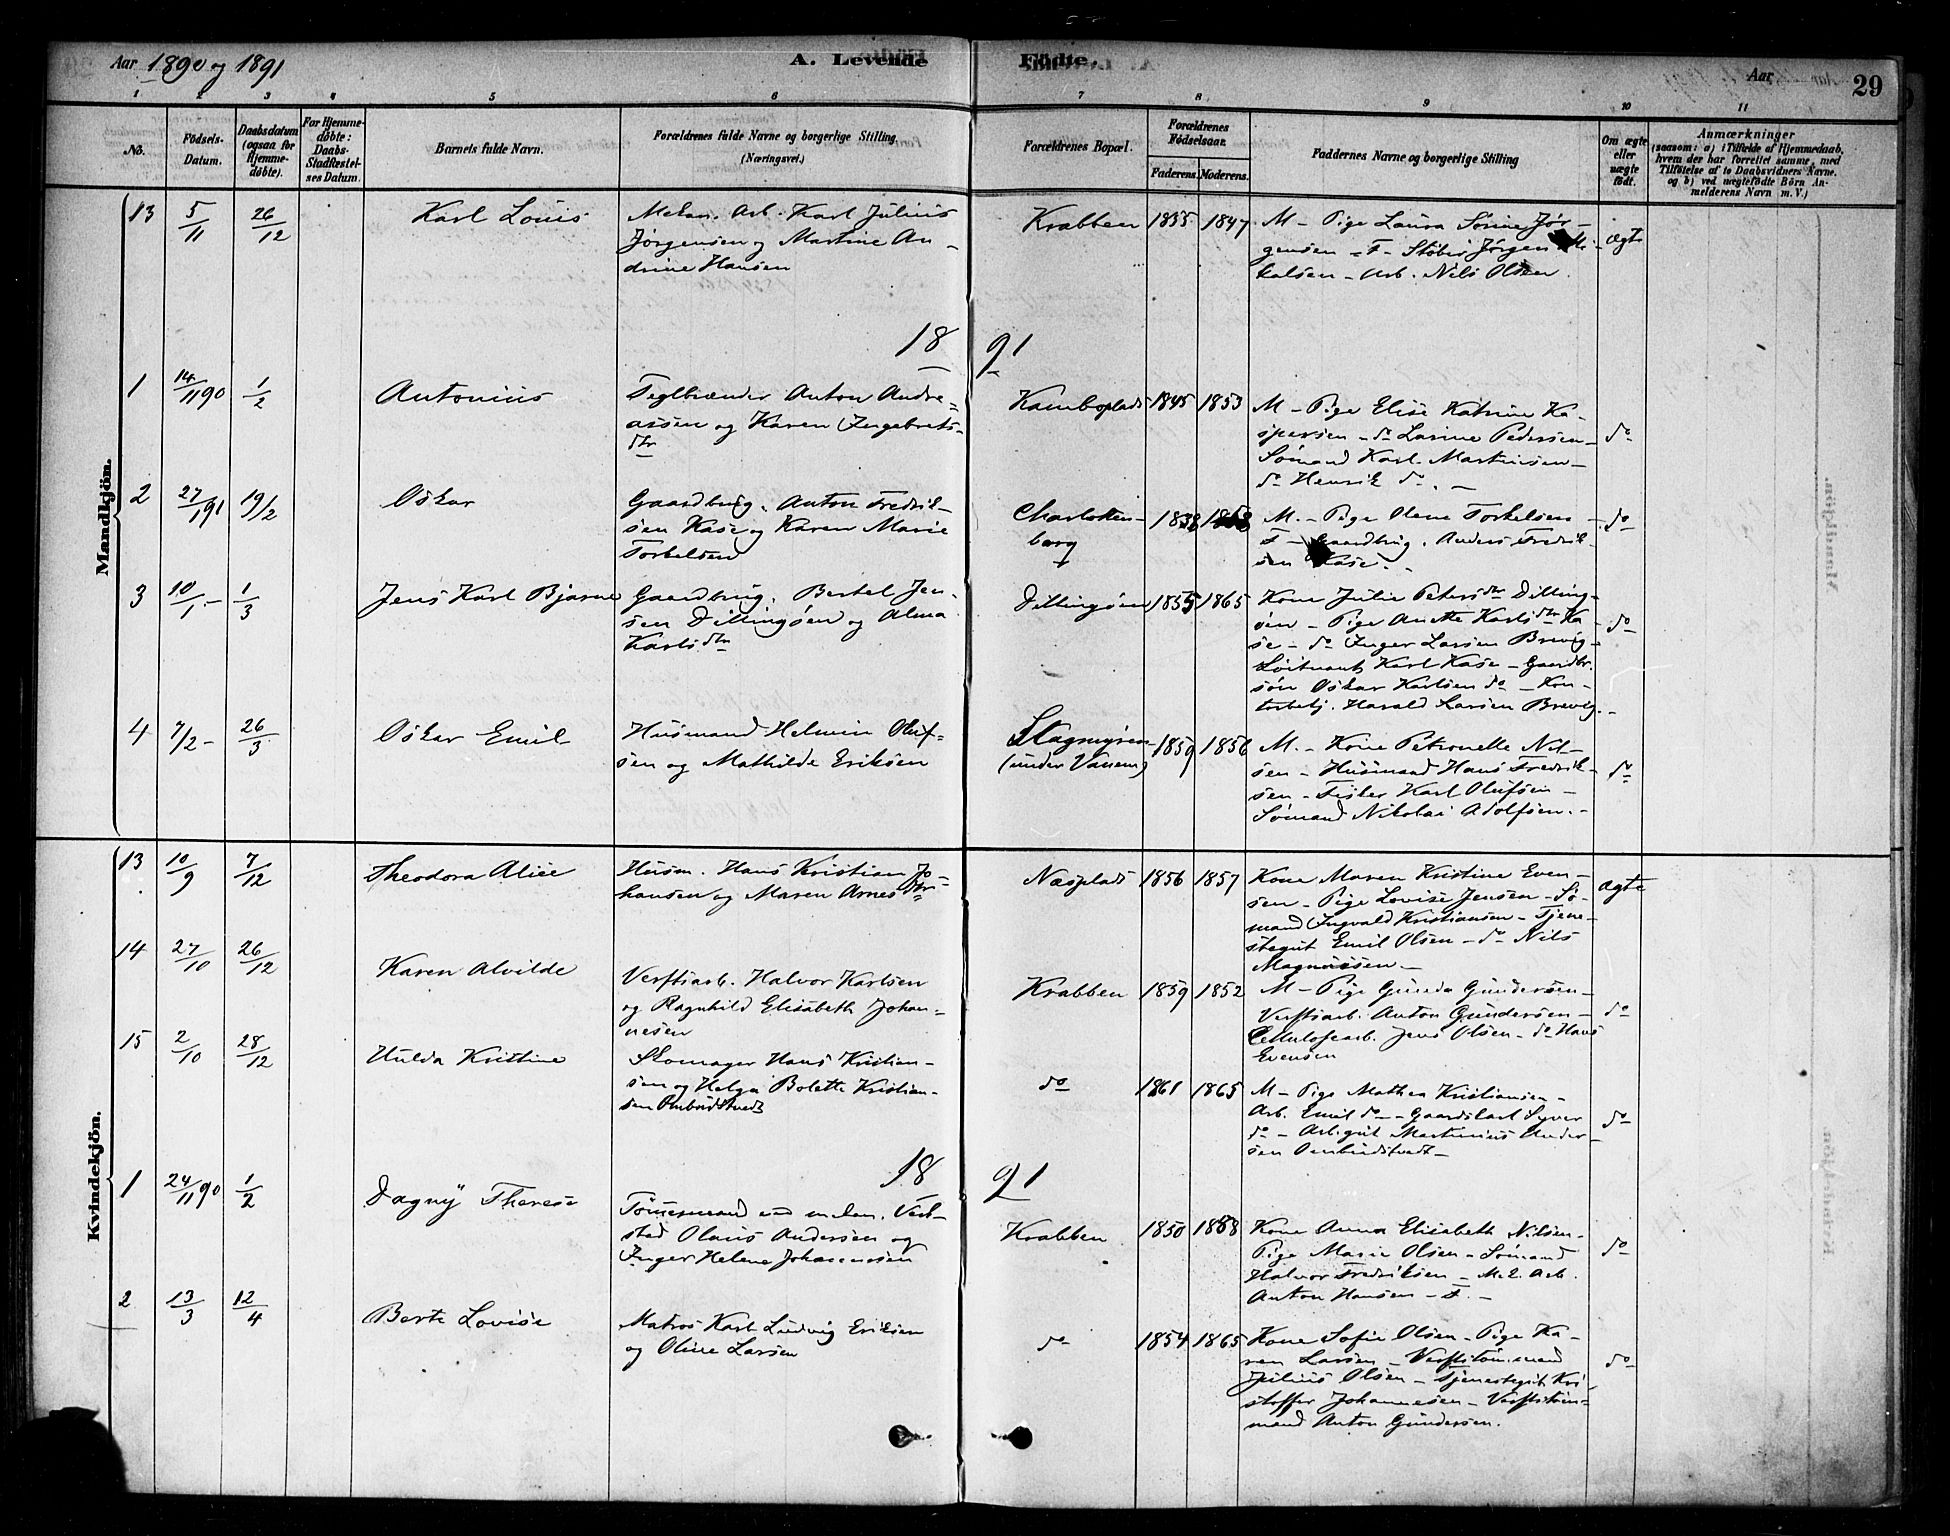 Aar 1890 og 1891
A. Levende Födte.
Aar
29
1 2 3 4 5 6 7 8 9 10 11
No.
Födsels-Datum.
Daabsdatum (ogsaa for Hjemme-døbte).
For Hjemme-døbte: Daabs-Stadfæstel-ses Datum.
Barnets fulde Navn.
Forældrenes fulde Navne og borgerlige Stilling. (Næringsvei.)
Forældrenes Bopæl.
Forældrenes Fødselsaar.
Faderens. Moderens.
Faddernes Navne og borgerlige Stilling
Om ægte eller uægte født.
Anmærkninger
(saasom: a) i Tilfælde af Hjemmedaab,
hvem der har forrettet samme, med
Tilføielse af to Daabsvidners Navne.
og b) ved uægtefødte Börn An-
melderens Navn m. V.)
Mandkjön.
13 5/11 26/12 Karl Louis
Mekan. Arb. Karl Julius
Jørgensen og Martine An-
drine Hansen
Krabben 1855 1847
M - Pige Laura Sørine Jør-
gensen - F - Støber Jørgen Mi-
kalsen - Arb. Nils Olsen.
ægte
18 91
1 14/11 90 1/2 Antonius
Teglbrænder Anton Andre-
assen og Karen Ingebrets-
dtr
Kamboplads 1845 1853
M - Pige Elise Katrine Ka-
spersen - do Larine Pedersen -
Sømand Karl Martinsen -
do Henrik do. -
do
2 27/1 91 19/2 Oskar
Gaardbrug. Anton Fredrik-
sen Kase og Karen Marie
Torkelsen
Charlotten-
borg
1838
M. - Pige Olene Torkelsen -
F - Gaardbrug. Anders Fredrik-
sen Kase. -
do
3 10/1 - 1/3 Jens Karl Bjarne
Gaardbrug. Bertel Jen-
sen Dillingøen og Alma
Karlsdtr
Dillingøen 1855 1865
Kone Julie Petersdtr Dilling-
øen - Pige Anette Karlsdtr Ka-
se - do Inger Larsen Brevig -
Løitnant Karl Kase - Gaardbr.
søn Oskar Karlsen do - Kon-
torbetj. Harald Larsen Brevig. -
do
4 7/2 - 26/3 Oskar Emil
Husmand Helmin Oluf-
sen og Mathilde Eriksen
(under Vanem)
1859 1856
M. - Kone Petronelle Nil-
sen - Husmand Hans Fredrik-
sen - Fisker Karl Olufsen -
Sømand Nikolai Adolfsen. -
do
Kvindekjön.
13 10/9 7/12 Theodora Alice
Husm. Hans Kristian Jo-
hansen og Maren Arnesdtr
Næsplads 1856 1857
Kone Maren Kristine Even-
sen - Pige Lovise Jensen - Sø-
mand Ingvald Kristiansen - Tjene-
stegut Emil Olsen - do Nils
Magnussen -
ægte
14 27/10 26/12 Karen Alvilde
Verftsarb. Halvor Karlsen
og Ragnhild Elisabeth Johan-
nesen
Krabben 1859 1852
M - Pige Gunda Gundersen -
Verftsarb. Anton Gundersen -
Cellulosearb. Jens Olsen - do Hans
Evensen
do
15 2/10 28/12 Hulda Kristine
Skomager Hans Kristian-
sen og Helga Bolette Kristian-
sen Ombudstvedt
do 1861 1865
M - Pige Mathea Kristiansen -
Arb. Emil do - Gaardskarl Syver
do - Arb.gut Martinius Ander-
sen Ombudstvedt -
do
18 91
1 24/11 90 1/2 Dagny Therese
Tømmermand ved mekan. Verk-
sted Olaus Andersen og
Inger Helene Johannesen
Krabben 1850 1858
Kone Anna Elisabeth Nilsen -
Pige Marie Olsen - Sømand
Halvor Fredriksen - Mek. Arb.
Anton Hansen - F. -
do
2 13/3 12/4 Berte Lovise
Matros Karl Ludvig Eriksen
og Oline Larsen
do 1854 1865
Kone Sofie Olsen - Pige Ka-
ren Larsen - Verftstømmand
Julius Olsen - Tjenestegut Kri-
stoffer Johannesen - Verftstøm-
mand Anton Gundersen.
do